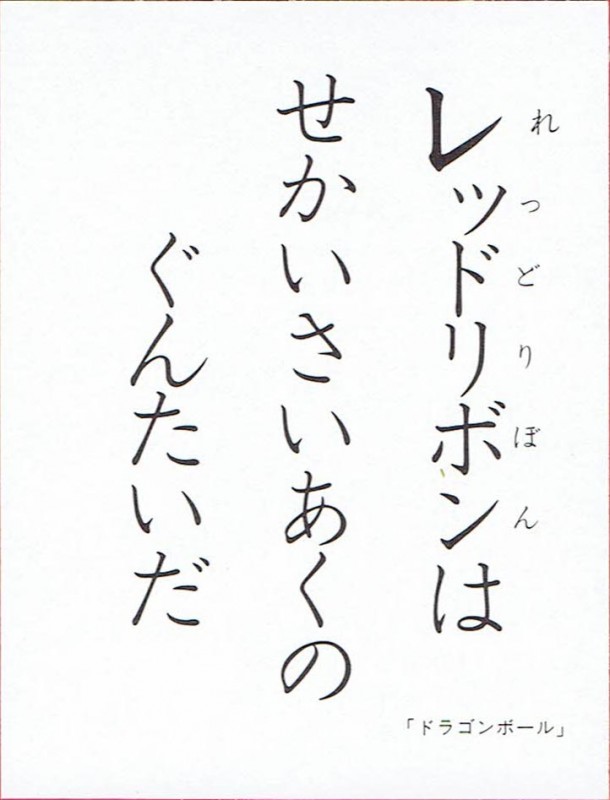 レッドリボンは
れっどりぼん
せかいさいあくの
ぐんたいだ
「ドラゴンボール」